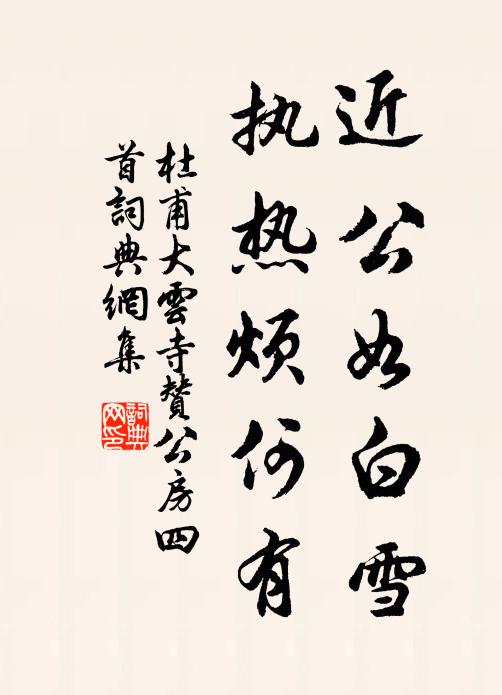 近公如白雪
执热烦何有
杜甫大雲寺贊公房四
首詞典網集
詞典
网印